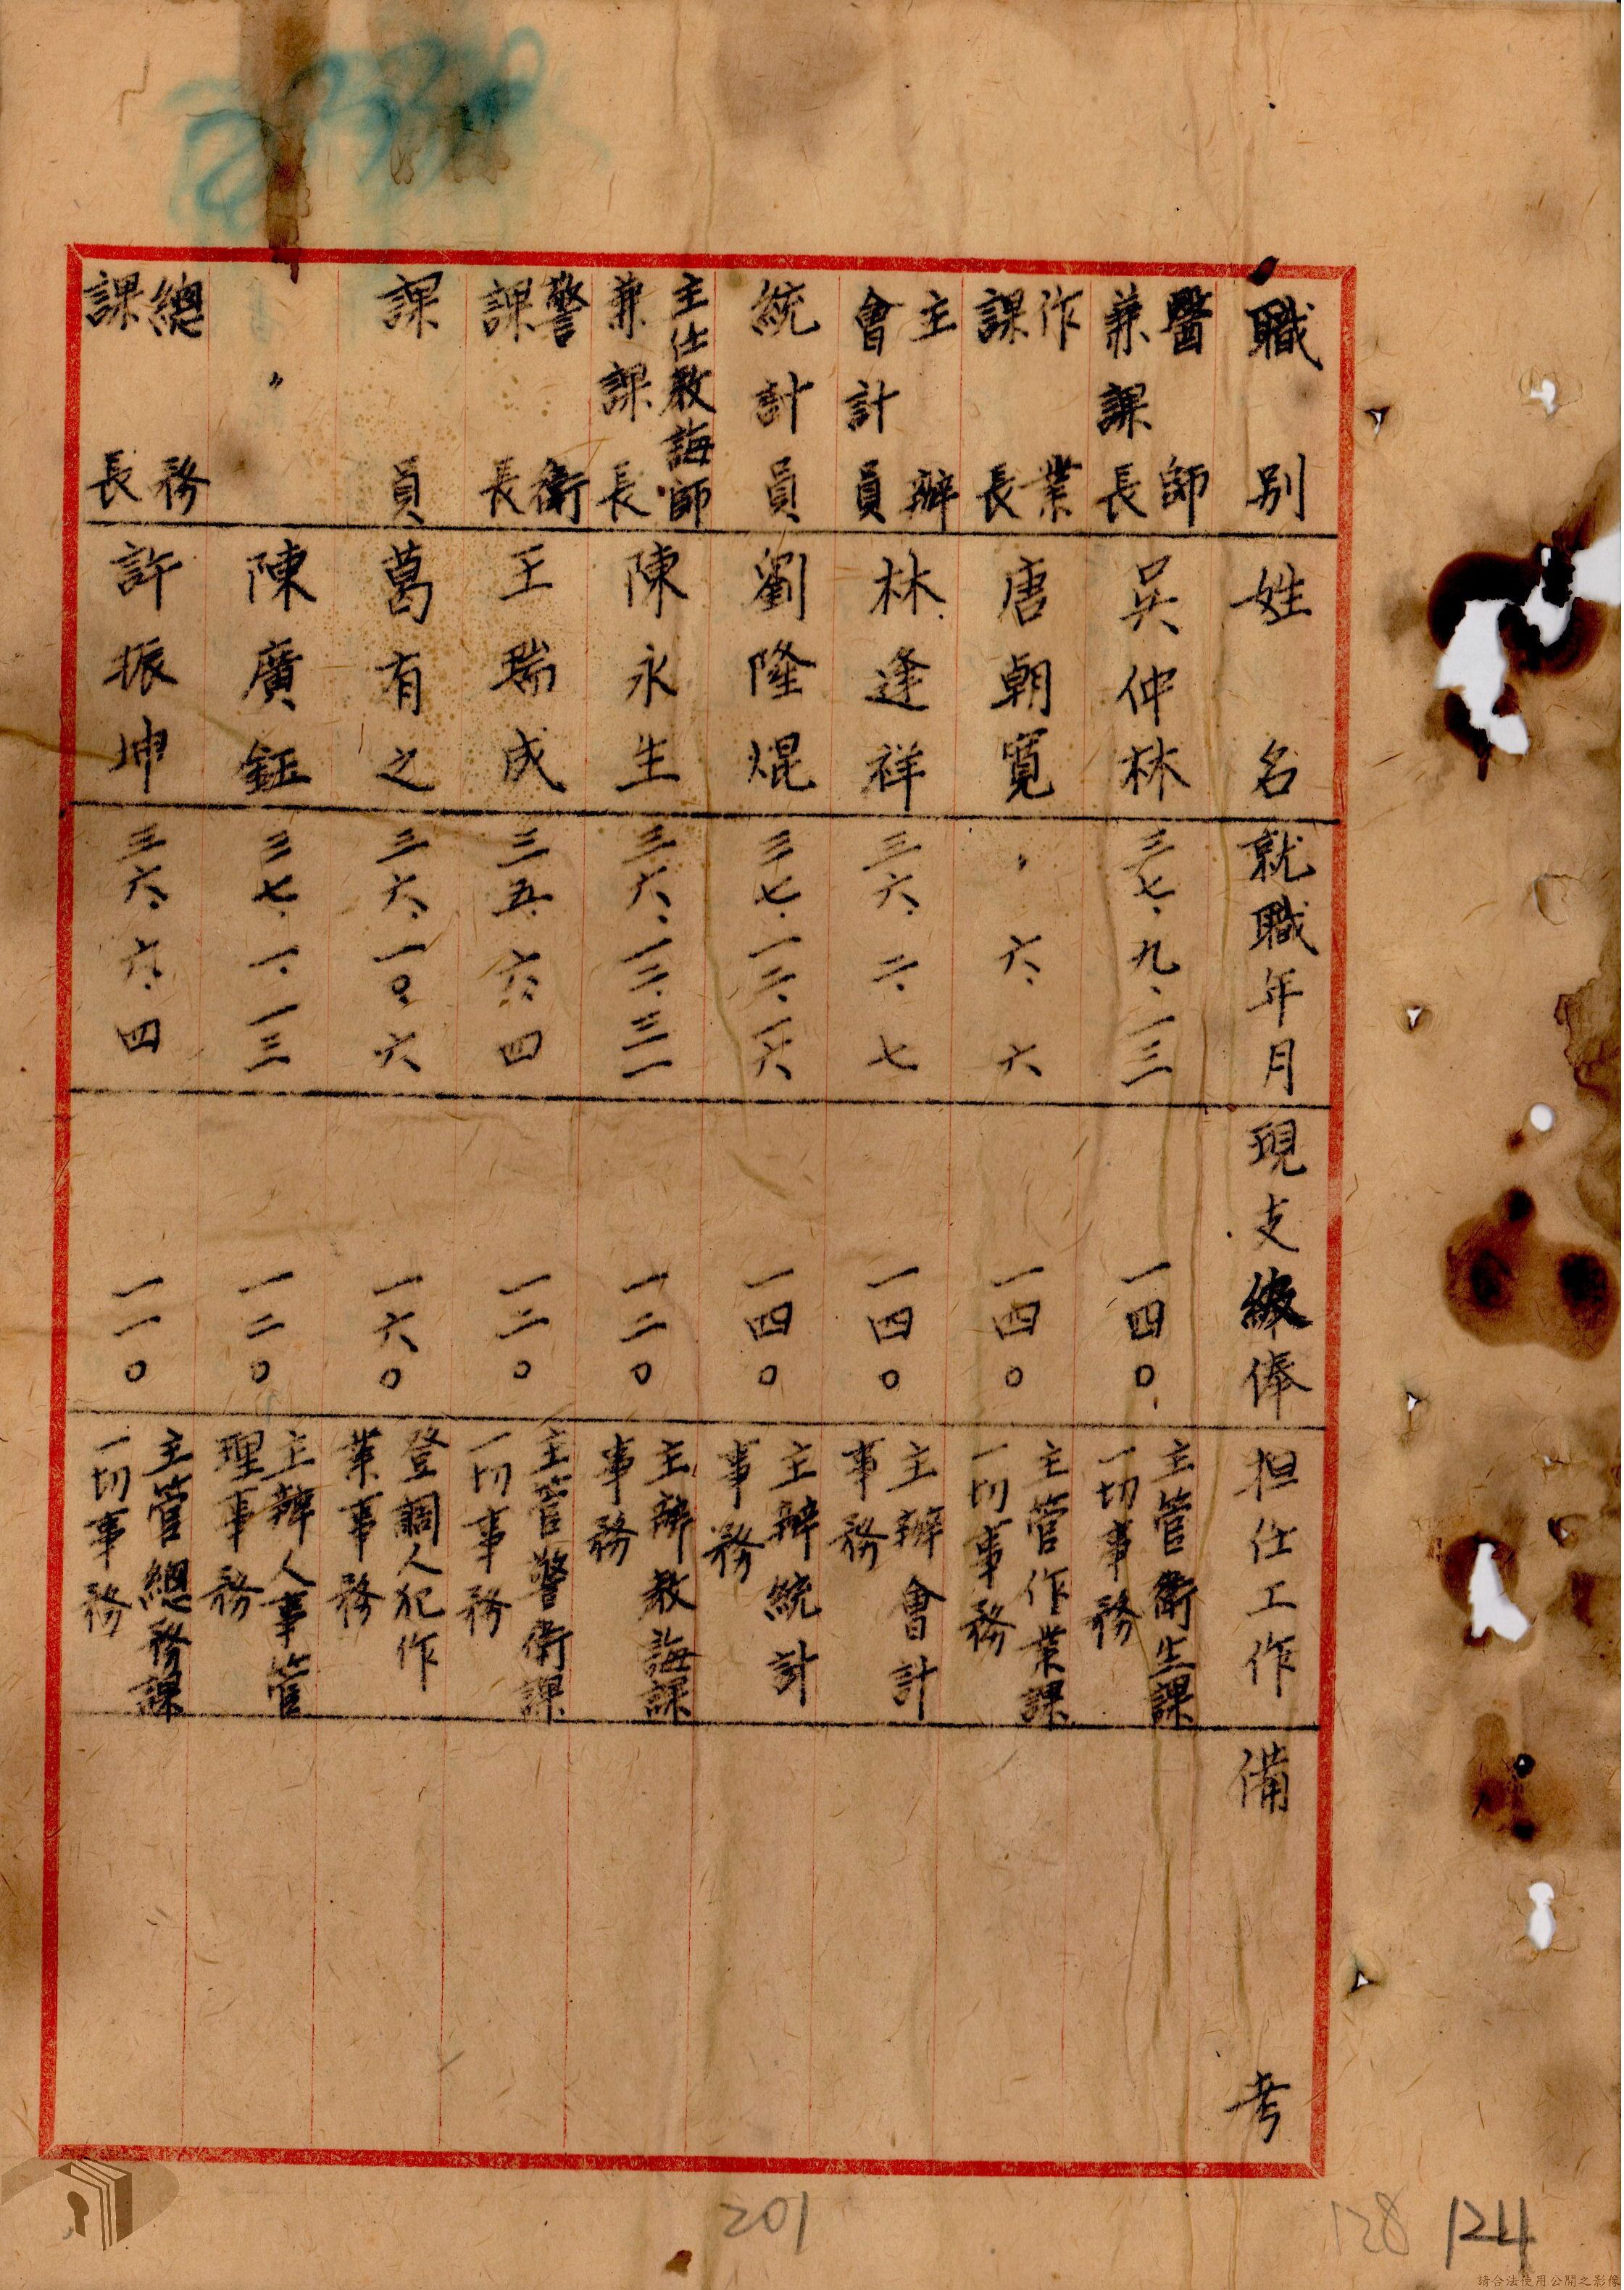 職別 姓名 就職年月 現支級俸 担任工作 備考
醫師
兼課長 吳仲林 三七、九、一三 一四〇 主管衛生課
一切事務
作業
課長 唐朝寬 〃 六、六 一四〇 主管作業課
一切事務
主辦
會計員 林逢祥 三六、二、七 一四〇 主辦會計
事務
統計員 劉隆焜 三七、一二、一六 一四〇 主辦統計
事務
主任教誨師
兼課長 陳永生 三六、一二、三一 一二〇 主辦教誨課
事務
警衛
課長 王瑞成 三五、六、四 一二〇 主管警衛課
一切事務
課員 葛有之 三六、一〇、六 一六〇 登調人犯作
業事務
〃 陳廣鈺 三七、一、一三 一二〇 主辦人事管
理事務
總務
課長 許振坤 三六、六、四 一一〇 主管總務課
一切事務
201
128 124
請合法使用公開之影像